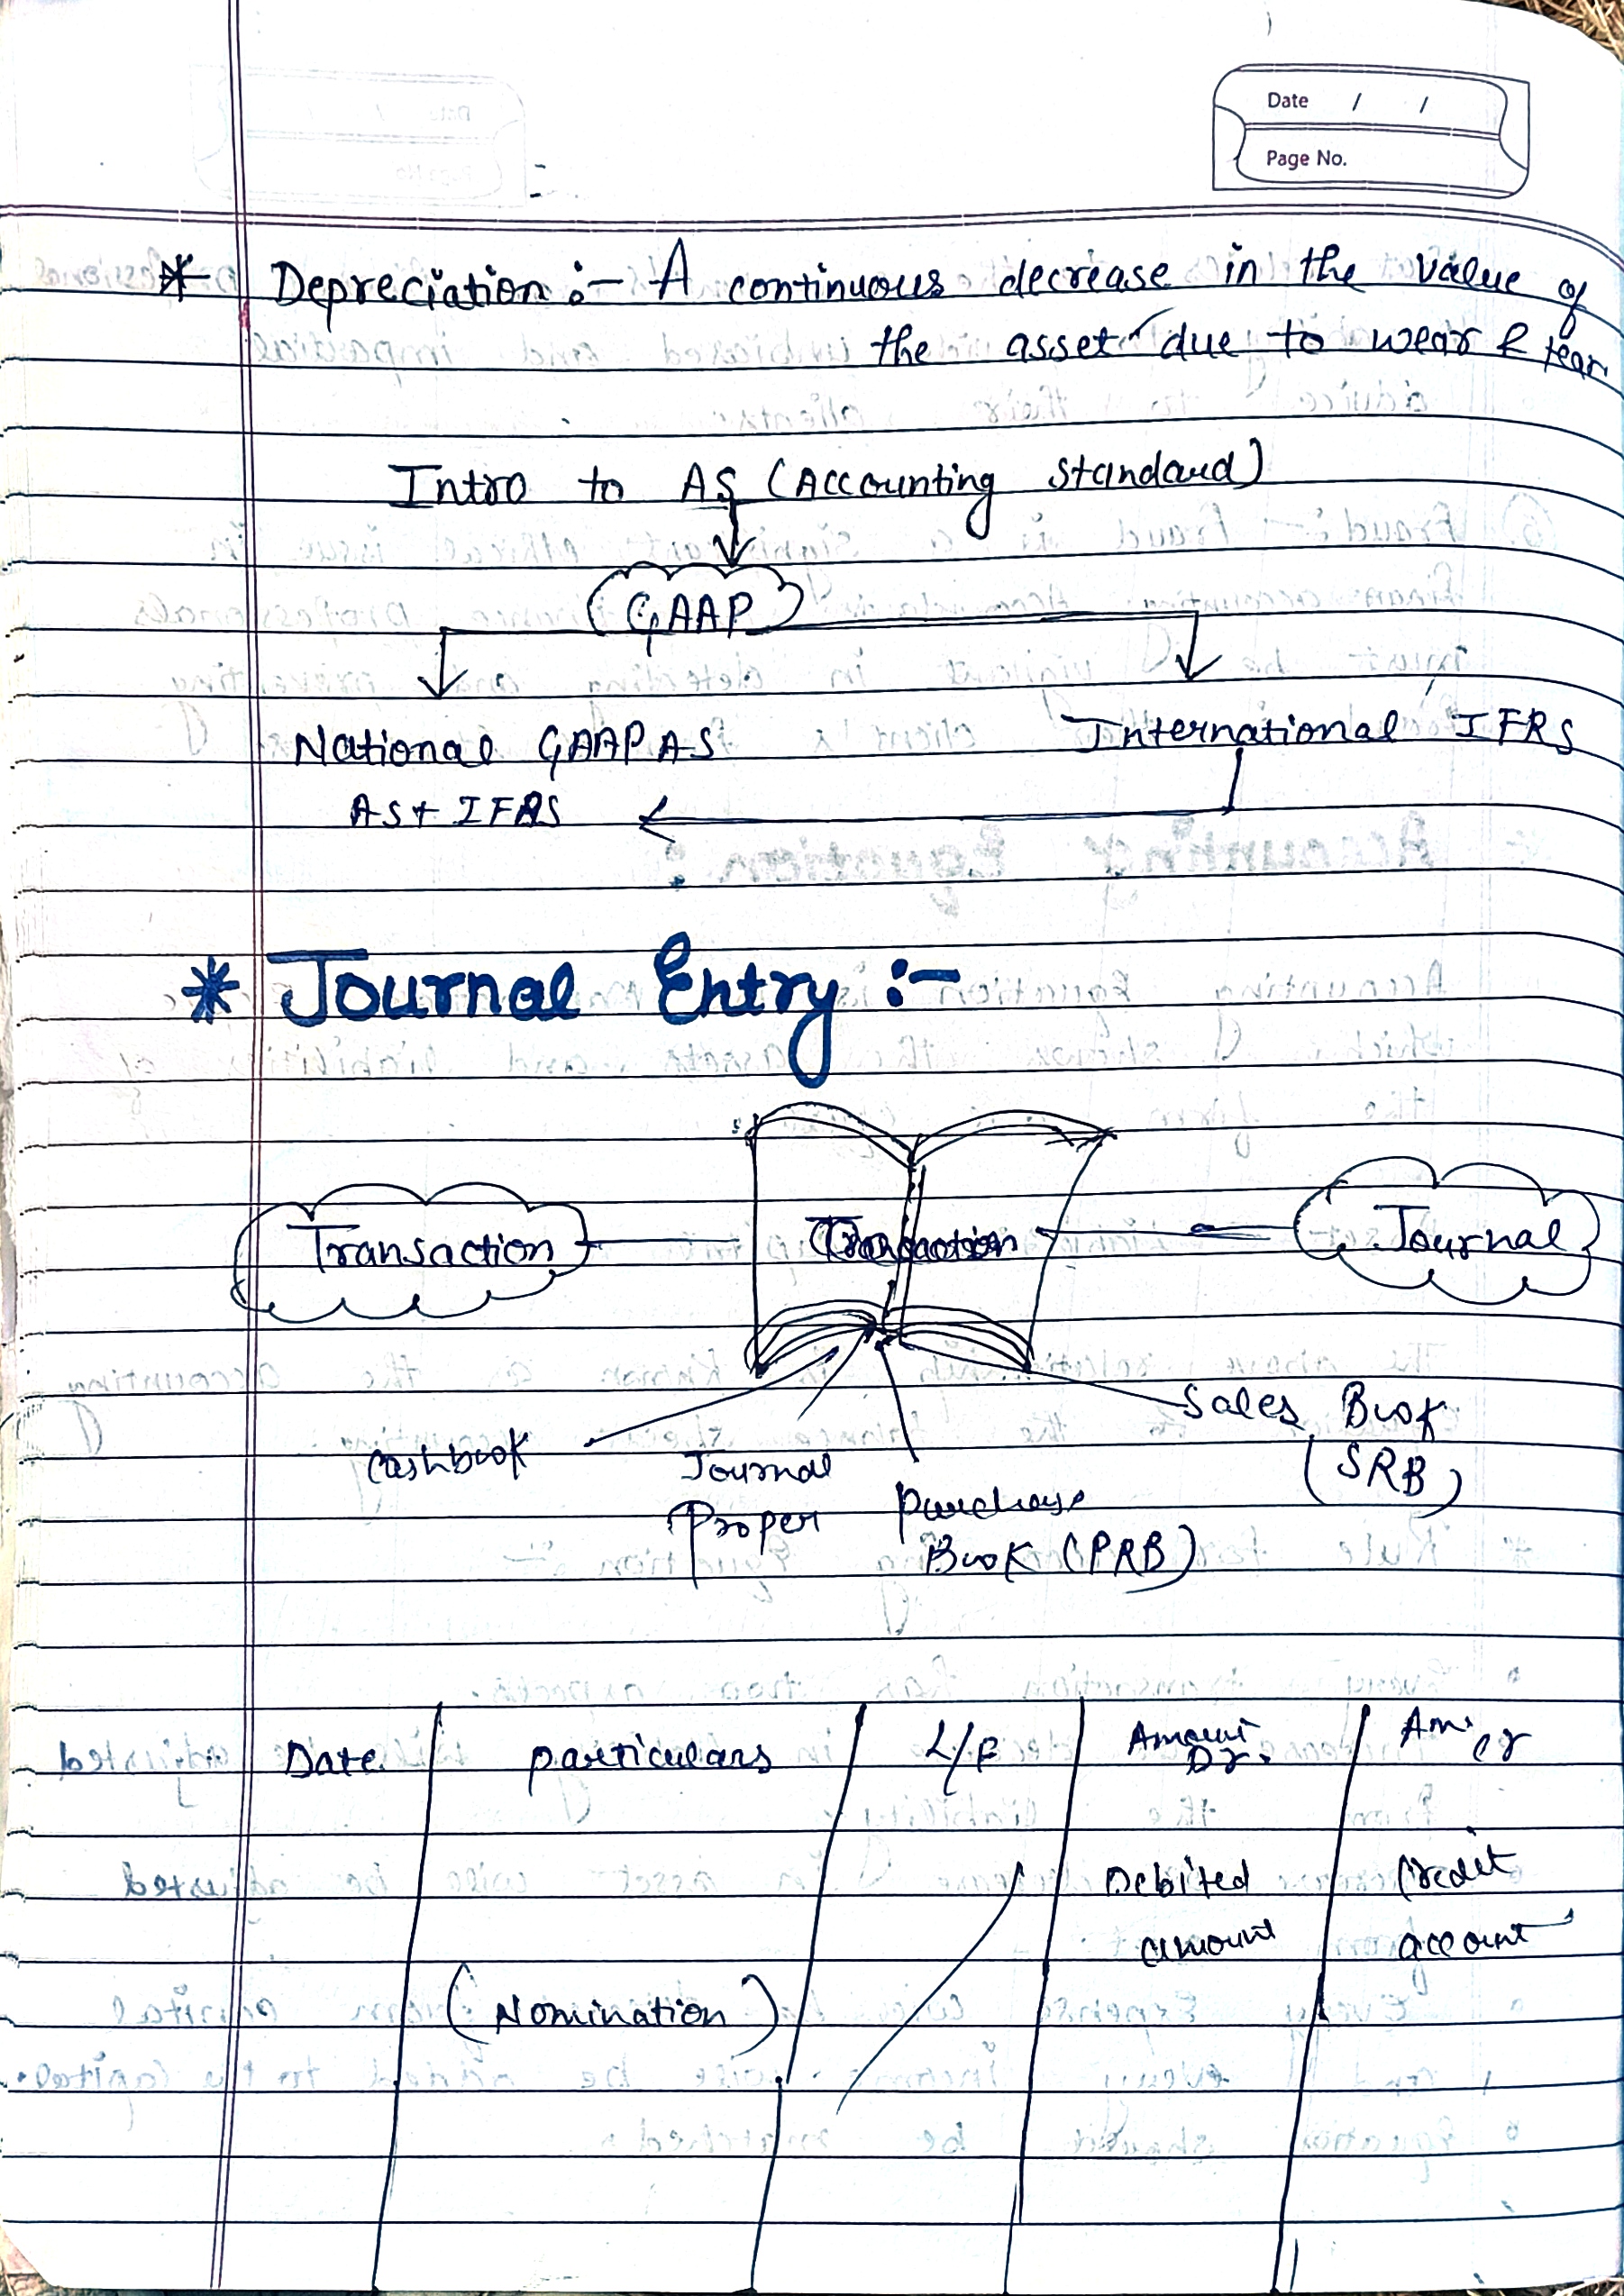 Date / /
Page No.
* Depreciation :- A continuous decrease in the value of
the asset due to wear & tear
Intro to AS (Accounting Standard)
GAAP
National GAAP AS
International IFRS
AS + IFRS
* Journal Entry :-
Transaction
Transaction
Journal
Cashbook
Journal
Proper
Purchase
Book (PRB)
Sales Book
(SRB)
Date particulars L/F Amount Dr. Am. Cr
Debited
amount
Credit
account
(Nomination)